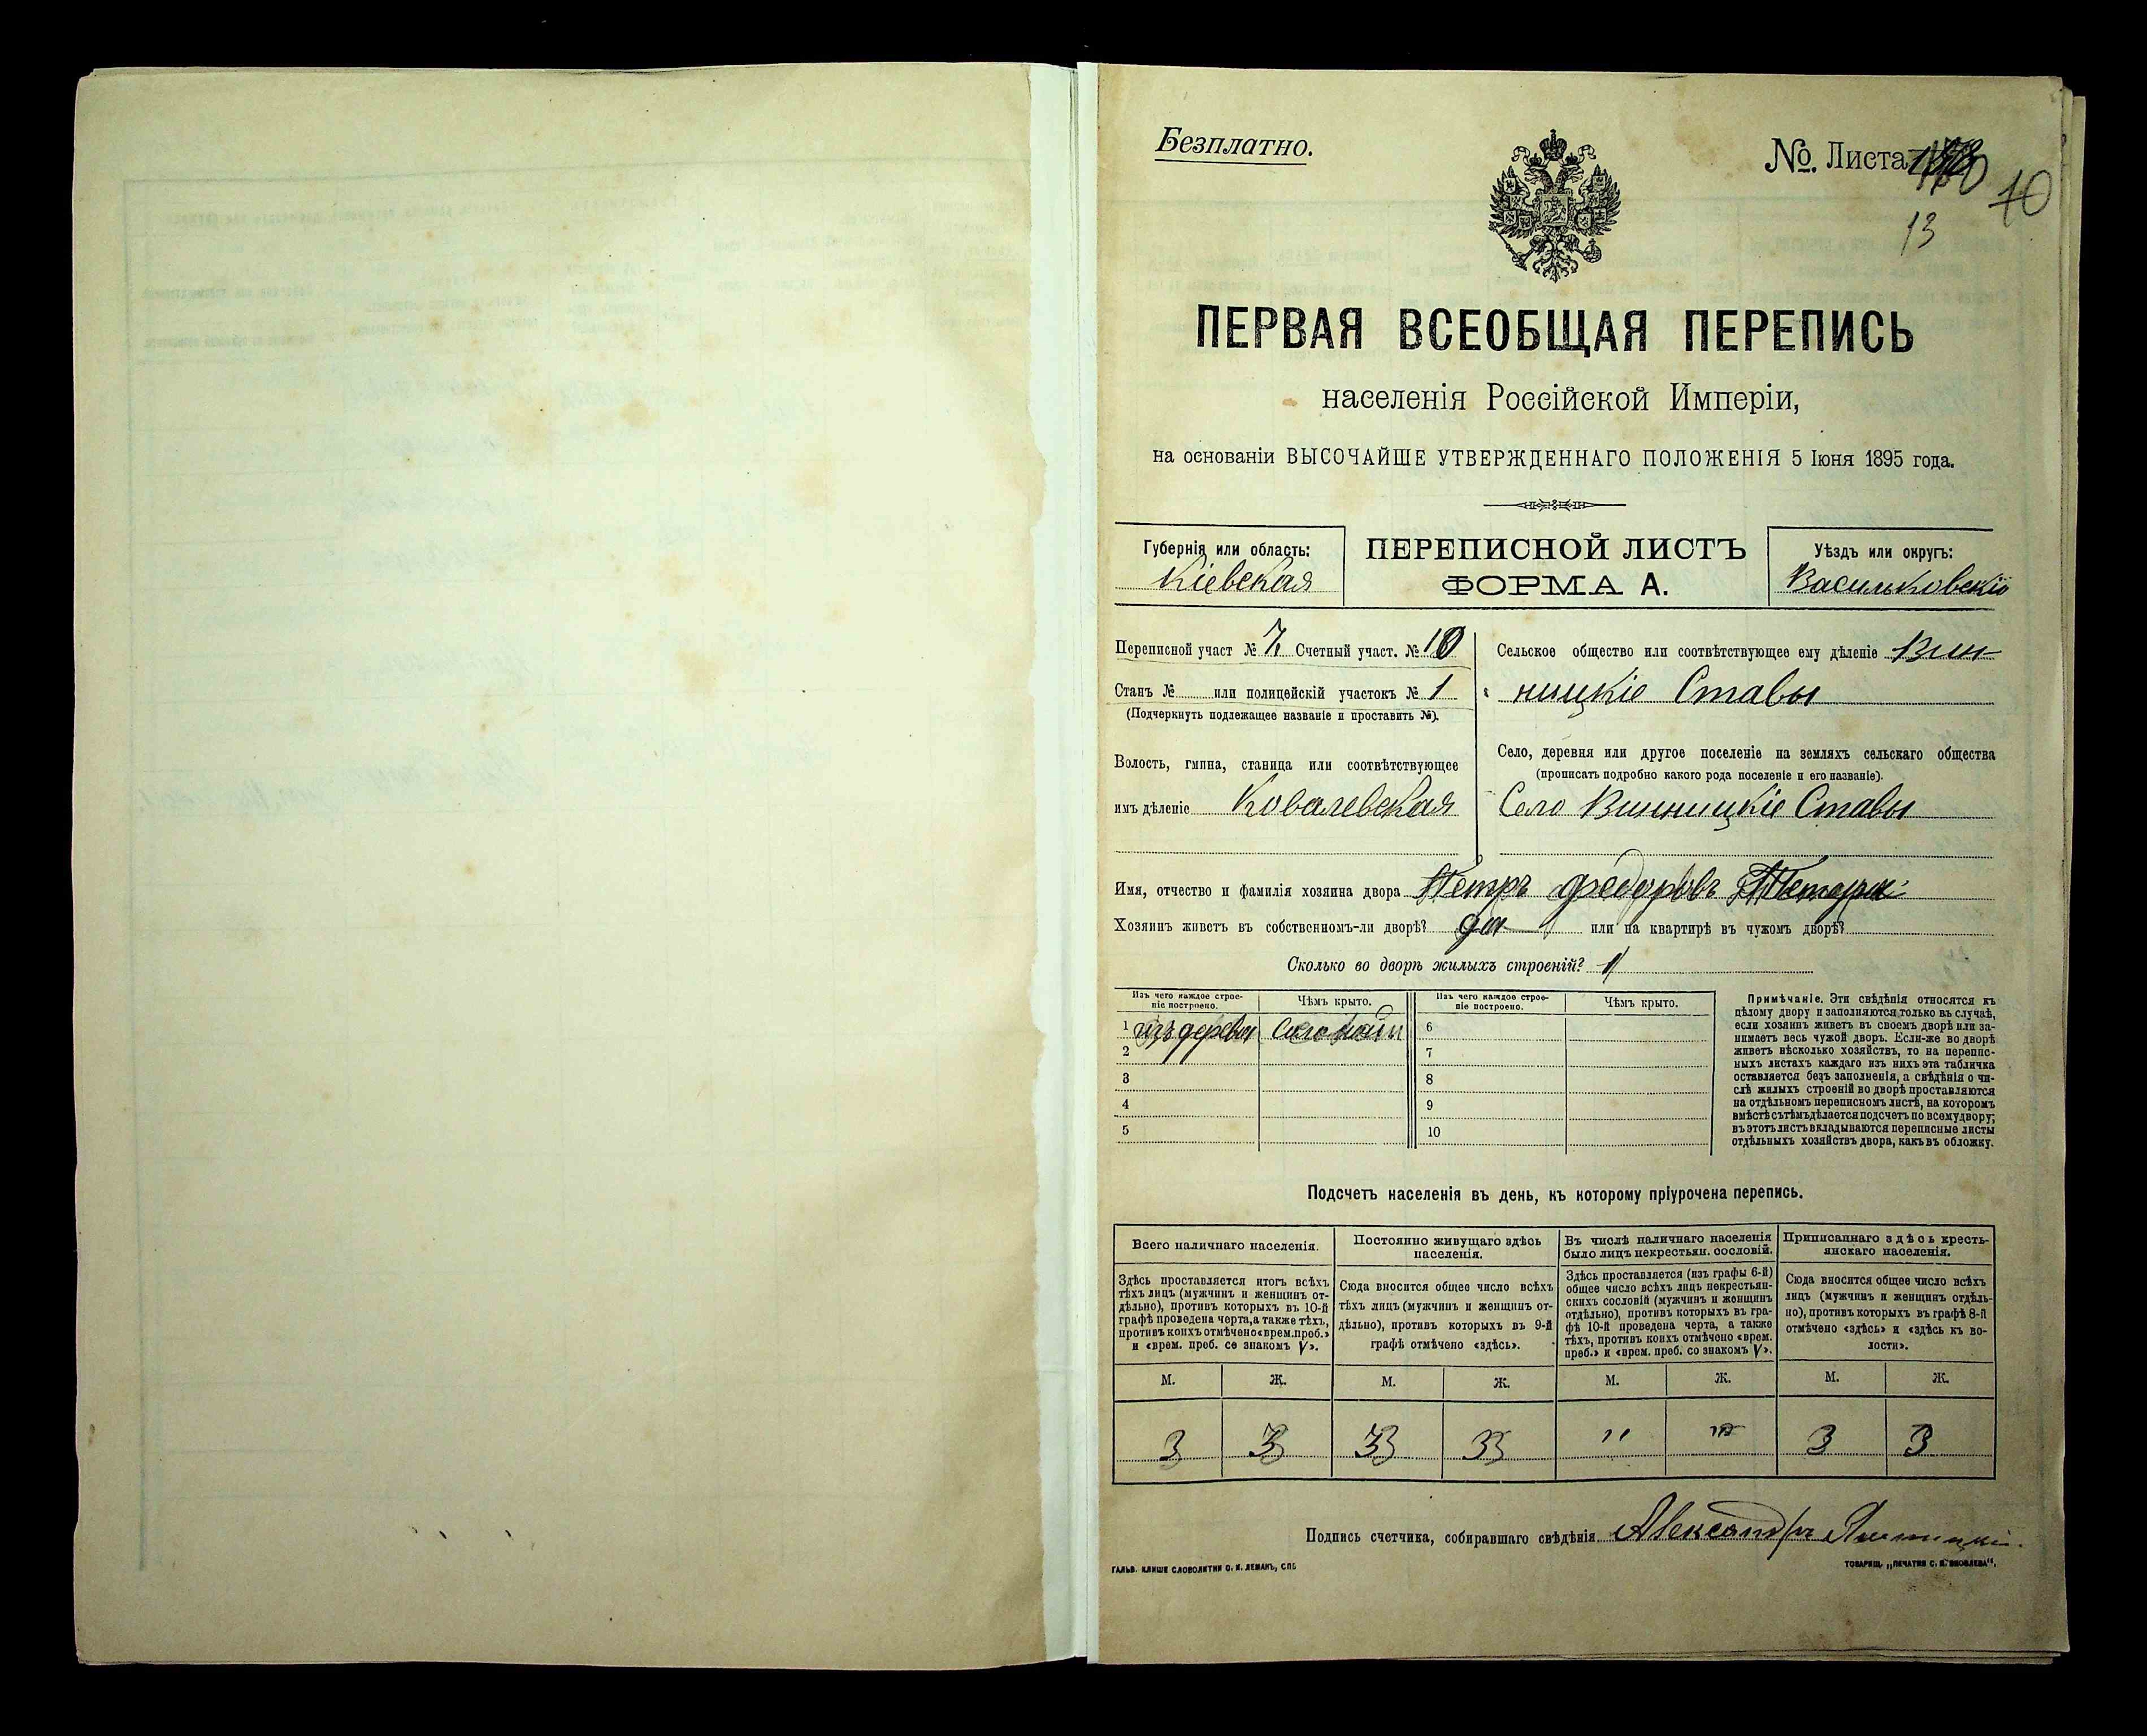 Безплатно.
№. Листа
70
13
ПЕРВАЯ ВСЕОБЩАЯ ПЕРЕПИСЬ
населенія Россійской Имперіи,
на основаніи ВЫСОЧАЙШЕ УТВЕРЖДЕННАГО ПОЛОЖЕНІЯ 5 Іюня 1895 года.
Губернія или область:
Кіевская
ПЕРЕПИСНОЙ ЛИСТЪ
ФОРМА А.
Уѣздъ или округъ:
Васильковскій
Переписной участ № 7. Счетный участ. № 10
Станъ № или полицейскій участокъ № 1
(Подчеркнуть подлежащее названіе и проставить №).
Волость, гмина, станица или соотвѣтствующее
имъ дѣленіе Ковалевская
Сельское общество или соотвѣтствующее ему дѣленіе Вин-
ницкіе Ставы
Село, деревня или другое поселеніе на земляхъ сельскаго общества
(прописать подробно какого рода поселеніе и его названіе).
Село Винницкіе Ставы
Имя, отчество и фамилія хозяина двора Петръ Федоровъ
Хозяинъ живетъ въ собственномъ-ли дворѣ? да или на квартирѣ въ чужомъ дворѣ?
Сколько во дворѣ жилыхъ строеній? 1
Изъ чего каждое строе-
ніе построено.
Чѣмъ крыто.
Изъ чего каждое строе-
ніе построено.
Чѣмъ крыто.
1 изъ дерева Соломой 6
2 7
3 8
4 9
5 10
Примѣчаніе. Эти свѣдѣнія относятся къ
цѣлому двору и заполняются только въ случаѣ,
если хозяинъ живетъ въ своемъ дворѣ или за-
нимаетъ весь чужой дворъ. Если-же во дворѣ
живетъ нѣсколько хозяйствъ, то на перепис-
ныхъ листахъ каждаго изъ нихъ эта табличка
оставляется безъ заполненія, а свѣдѣнія о чи-
слѣ жилыхъ строеній во дворѣ проставляются
на отдѣльномъ переписномъ листѣ, на которомъ
вмѣстѣ съ тѣмъ дѣлается подсчетъ по всему двору;
въ этотъ листъ вкладываются переписные листы
отдѣльныхъ хозяйствъ двора, какъ въ обложку.
Подсчетъ населенія въ день, къ которому пріурочена перепись.
Всего наличнаго населенія.
Постоянно живущаго здѣсь
населенія.
Въ числѣ наличнаго населенія
было лицъ некрестьян. сословій.
Приписаннаго здѣсь кресть-
янскаго населенія.
Здѣсь проставляется итогъ всѣхъ
тѣхъ лицъ (мужчинъ и женщинъ от-
дѣльно), противъ которыхъ въ 10-й
графѣ проведена черта, а также тѣхъ,
противъ коихъ отмѣчено «врем. преб.»
и «врем. преб. со знакомъ V».
Сюда вносится общее число всѣхъ
тѣхъ лицъ (мужчинъ и женщинъ от-
дѣльно), противъ которыхъ въ 9-й
графѣ отмѣчено «здѣсь».
Здѣсь проставляется (изъ графы 6-й)
общее число всѣхъ лицъ некрестьян-
скихъ сословій (мужчинъ и женщинъ
отдѣльно), противъ которыхъ въ гра-
фѣ 10-й проведена черта, а также
тѣхъ, противъ коихъ отмѣчено «врем.
преб.» и «врем. преб. со знакомъ V».
Сюда вносится общее число всѣхъ
лицъ (мужчинъ и женщинъ отдѣль-
но), противъ которыхъ въ графѣ 8-й
отмѣчено «здѣсь» и «здѣсь къ во-
лости».
М. Ж. М. Ж. М. Ж. М. Ж.
3 3 3 3 " " 3 3
Подпись счетчика, собиравшаго свѣдѣнія Александръ
ГАЛЬВ. КЛИШЕ СЛОВОЛИТНИ О. И. ЛЕМАНЪ, СПБ.
ТОВАРИЩ. „ПЕЧАТНЯ С. П. ЯКОВЛЕВА",